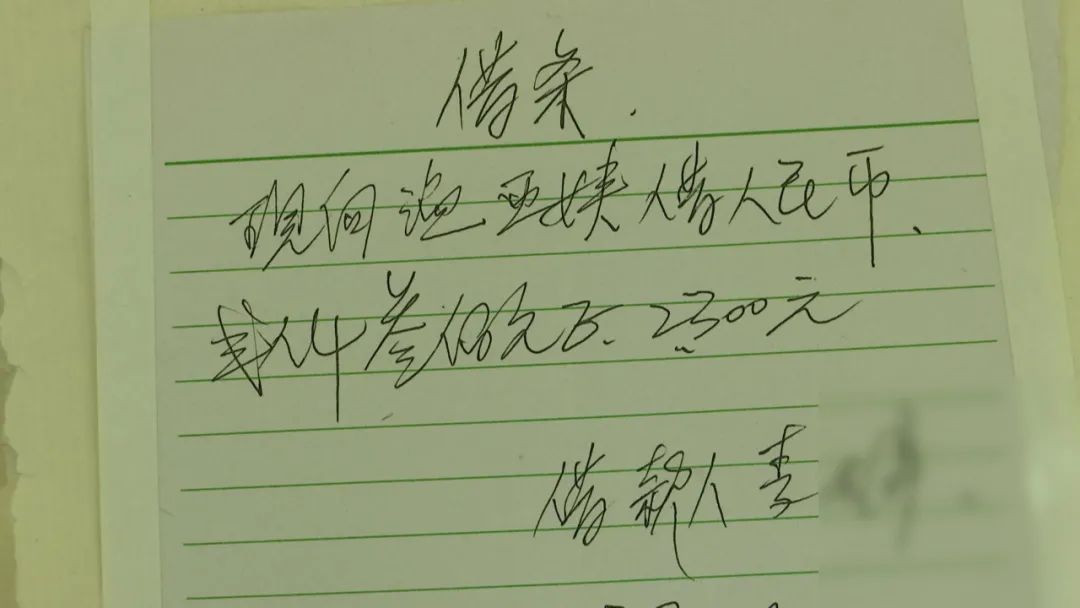 借条.
现向逃亚姨借人民币、
贰仟叁佰元正、2300元
借款人李